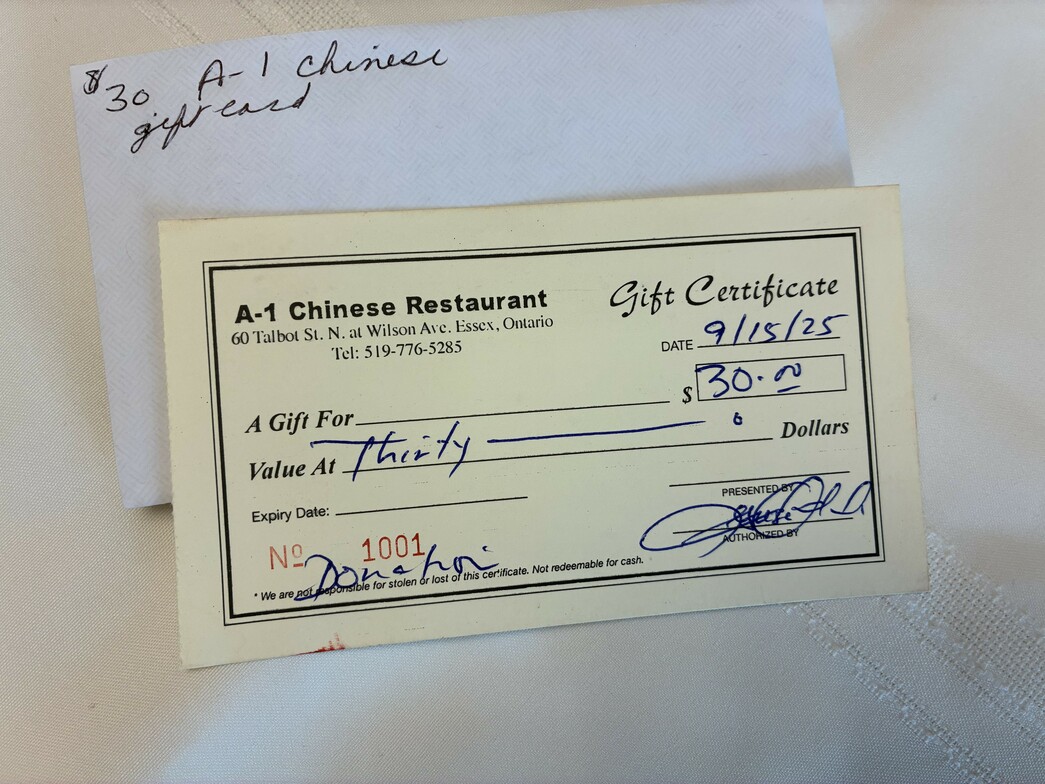 $30 A-1 Chinese
gift card
A-1 Chinese Restaurant
60 Talbot St. N. at Wilson Ave. Essex, Ontario
Tel: 519-776-5285
Gift Certificate
DATE 9/15/25
$ 30.00
A Gift For
Value At Thirty Dollars
Expiry Date:
PRESENTED BY
AUTHORIZED BY
Nº 1001
Donation
* We are not responsible for stolen or lost of this certificate. Not redeemable for cash.